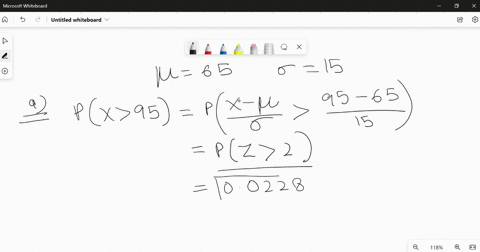 Microsoft Whiteboard
Untitled whiteboard
μ = 65 σ = 15
a) P(X > 95) = P(X − μ / σ > 95 − 65 / 15)
= P(Z > 2)
= 0.0228
118%